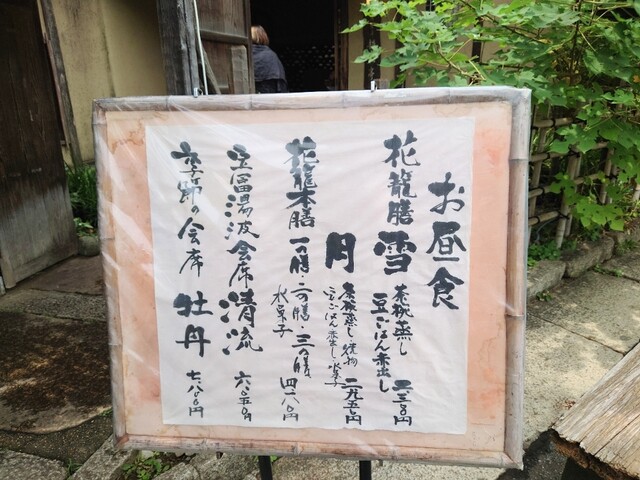 お昼食
花籠膳 雪 茶碗蒸し
豆ごはん 赤出し 二二三〇円
月 茶椀蒸し・焼物
豆ごはん・赤出し・水菓子 二九五〇円
花籠本膳 一の膳・二の膳・三の膳
水菓子 四一八〇円
湯波会席 清流 六〇五〇円
季節の会席 牡丹 七八〇〇円